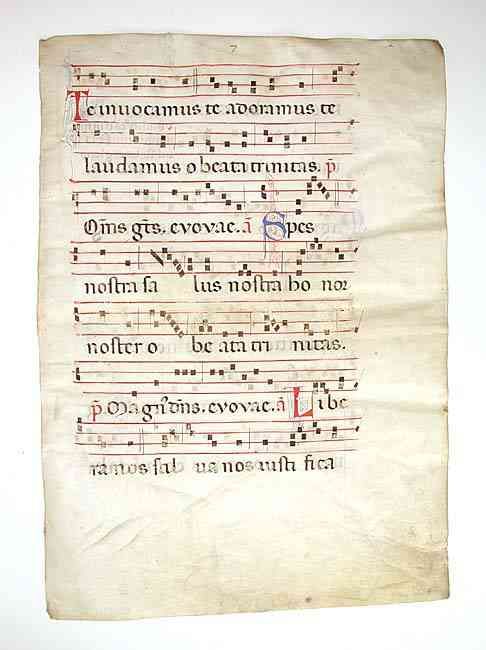 7
Te invocamus te adoramus te
laudamus o beata trinitas. p̄
Om̄s gt̄s. evovae. ā Spes
nostra sa lus nostra ho nor
noster o be ata tri nitas.
p̄. Magn' dn̄s. evovae. ā Libe
ra nos sal va nos iusti fica